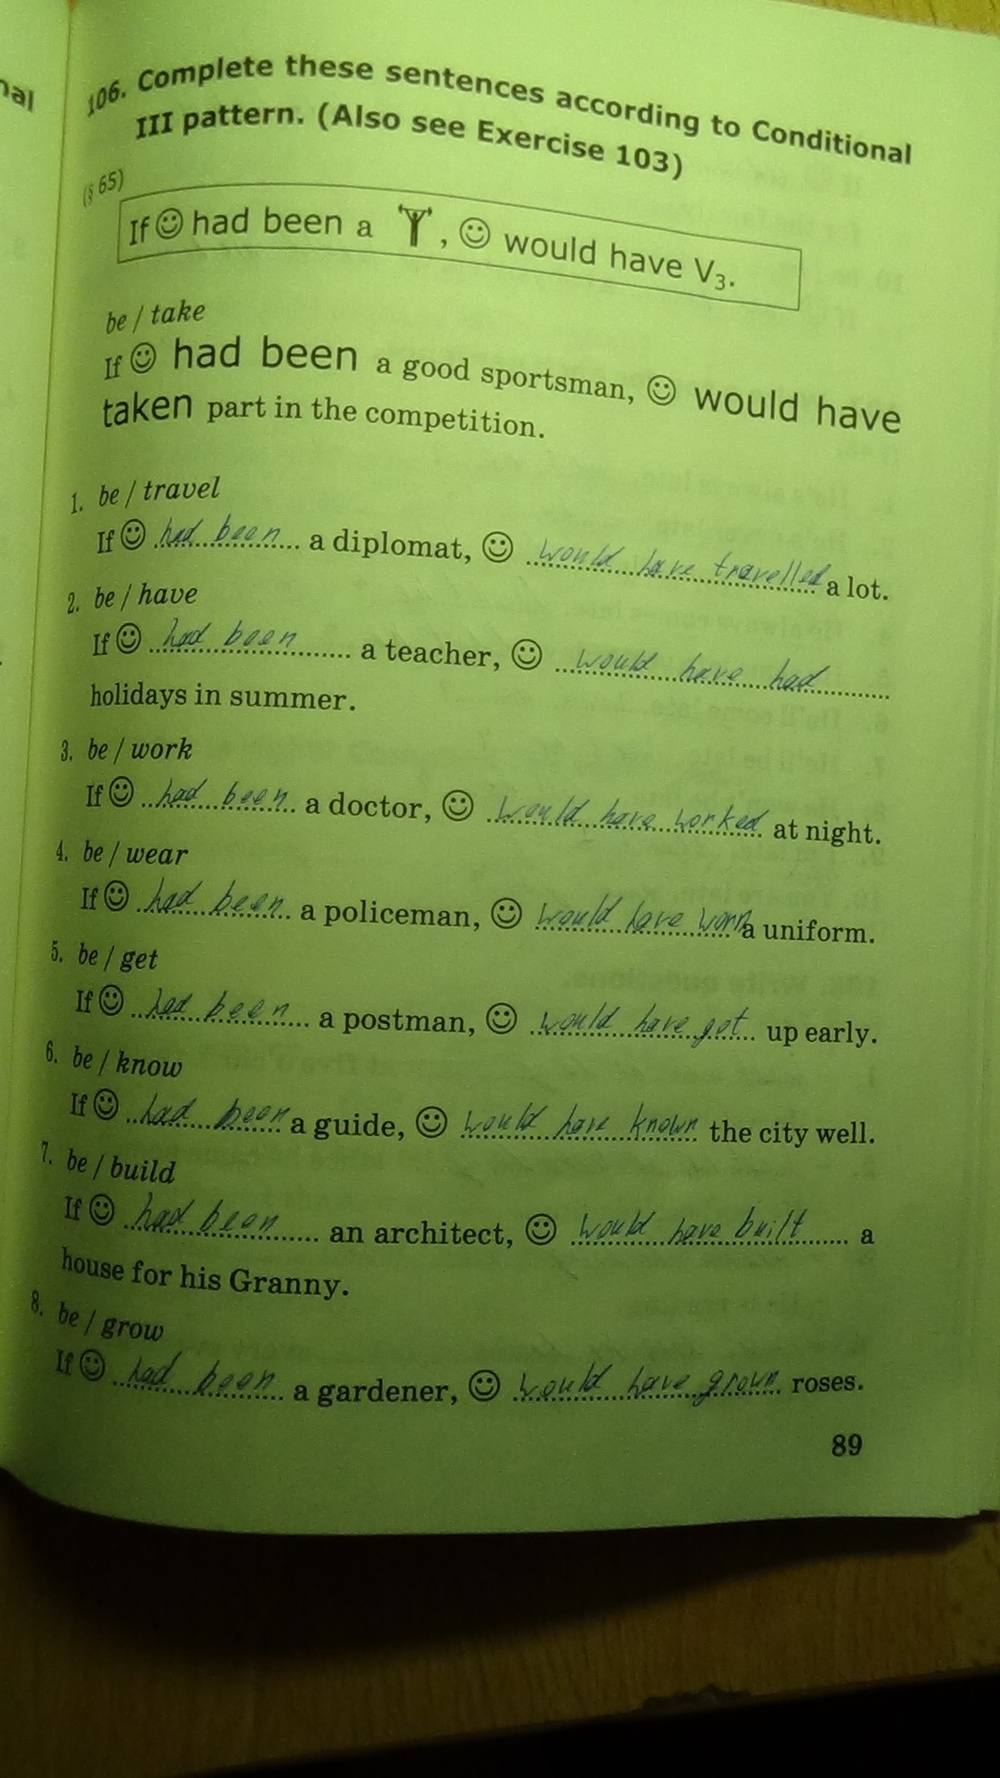 nal
106. Complete these sentences according to Conditional
III pattern. (Also see Exercise 103)
(§ 65)
If ☺ had been a , ☺ would have V₃.
be / take
If ☺ had been a good sportsman, ☺ would have
taken part in the competition.
1. be / travel
If ☺ had been a diplomat, ☺ would have travelled a lot.
2. be / have
If ☺ had been a teacher, ☺ would have had
holidays in summer.
3. be / work
If ☺ had been a doctor, ☺ would have worked at night.
4. be / wear
If ☺ had been a policeman, ☺ would have worn a uniform.
5. be / get
If ☺ had been a postman, ☺ would have got up early.
6. be / know
If ☺ had been a guide, ☺ would have known the city well.
7. be / build
If ☺ had been an architect, ☺ would have built a
house for his Granny.
8. be / grow
If ☺ had been a gardener, ☺ would have grown roses.
89